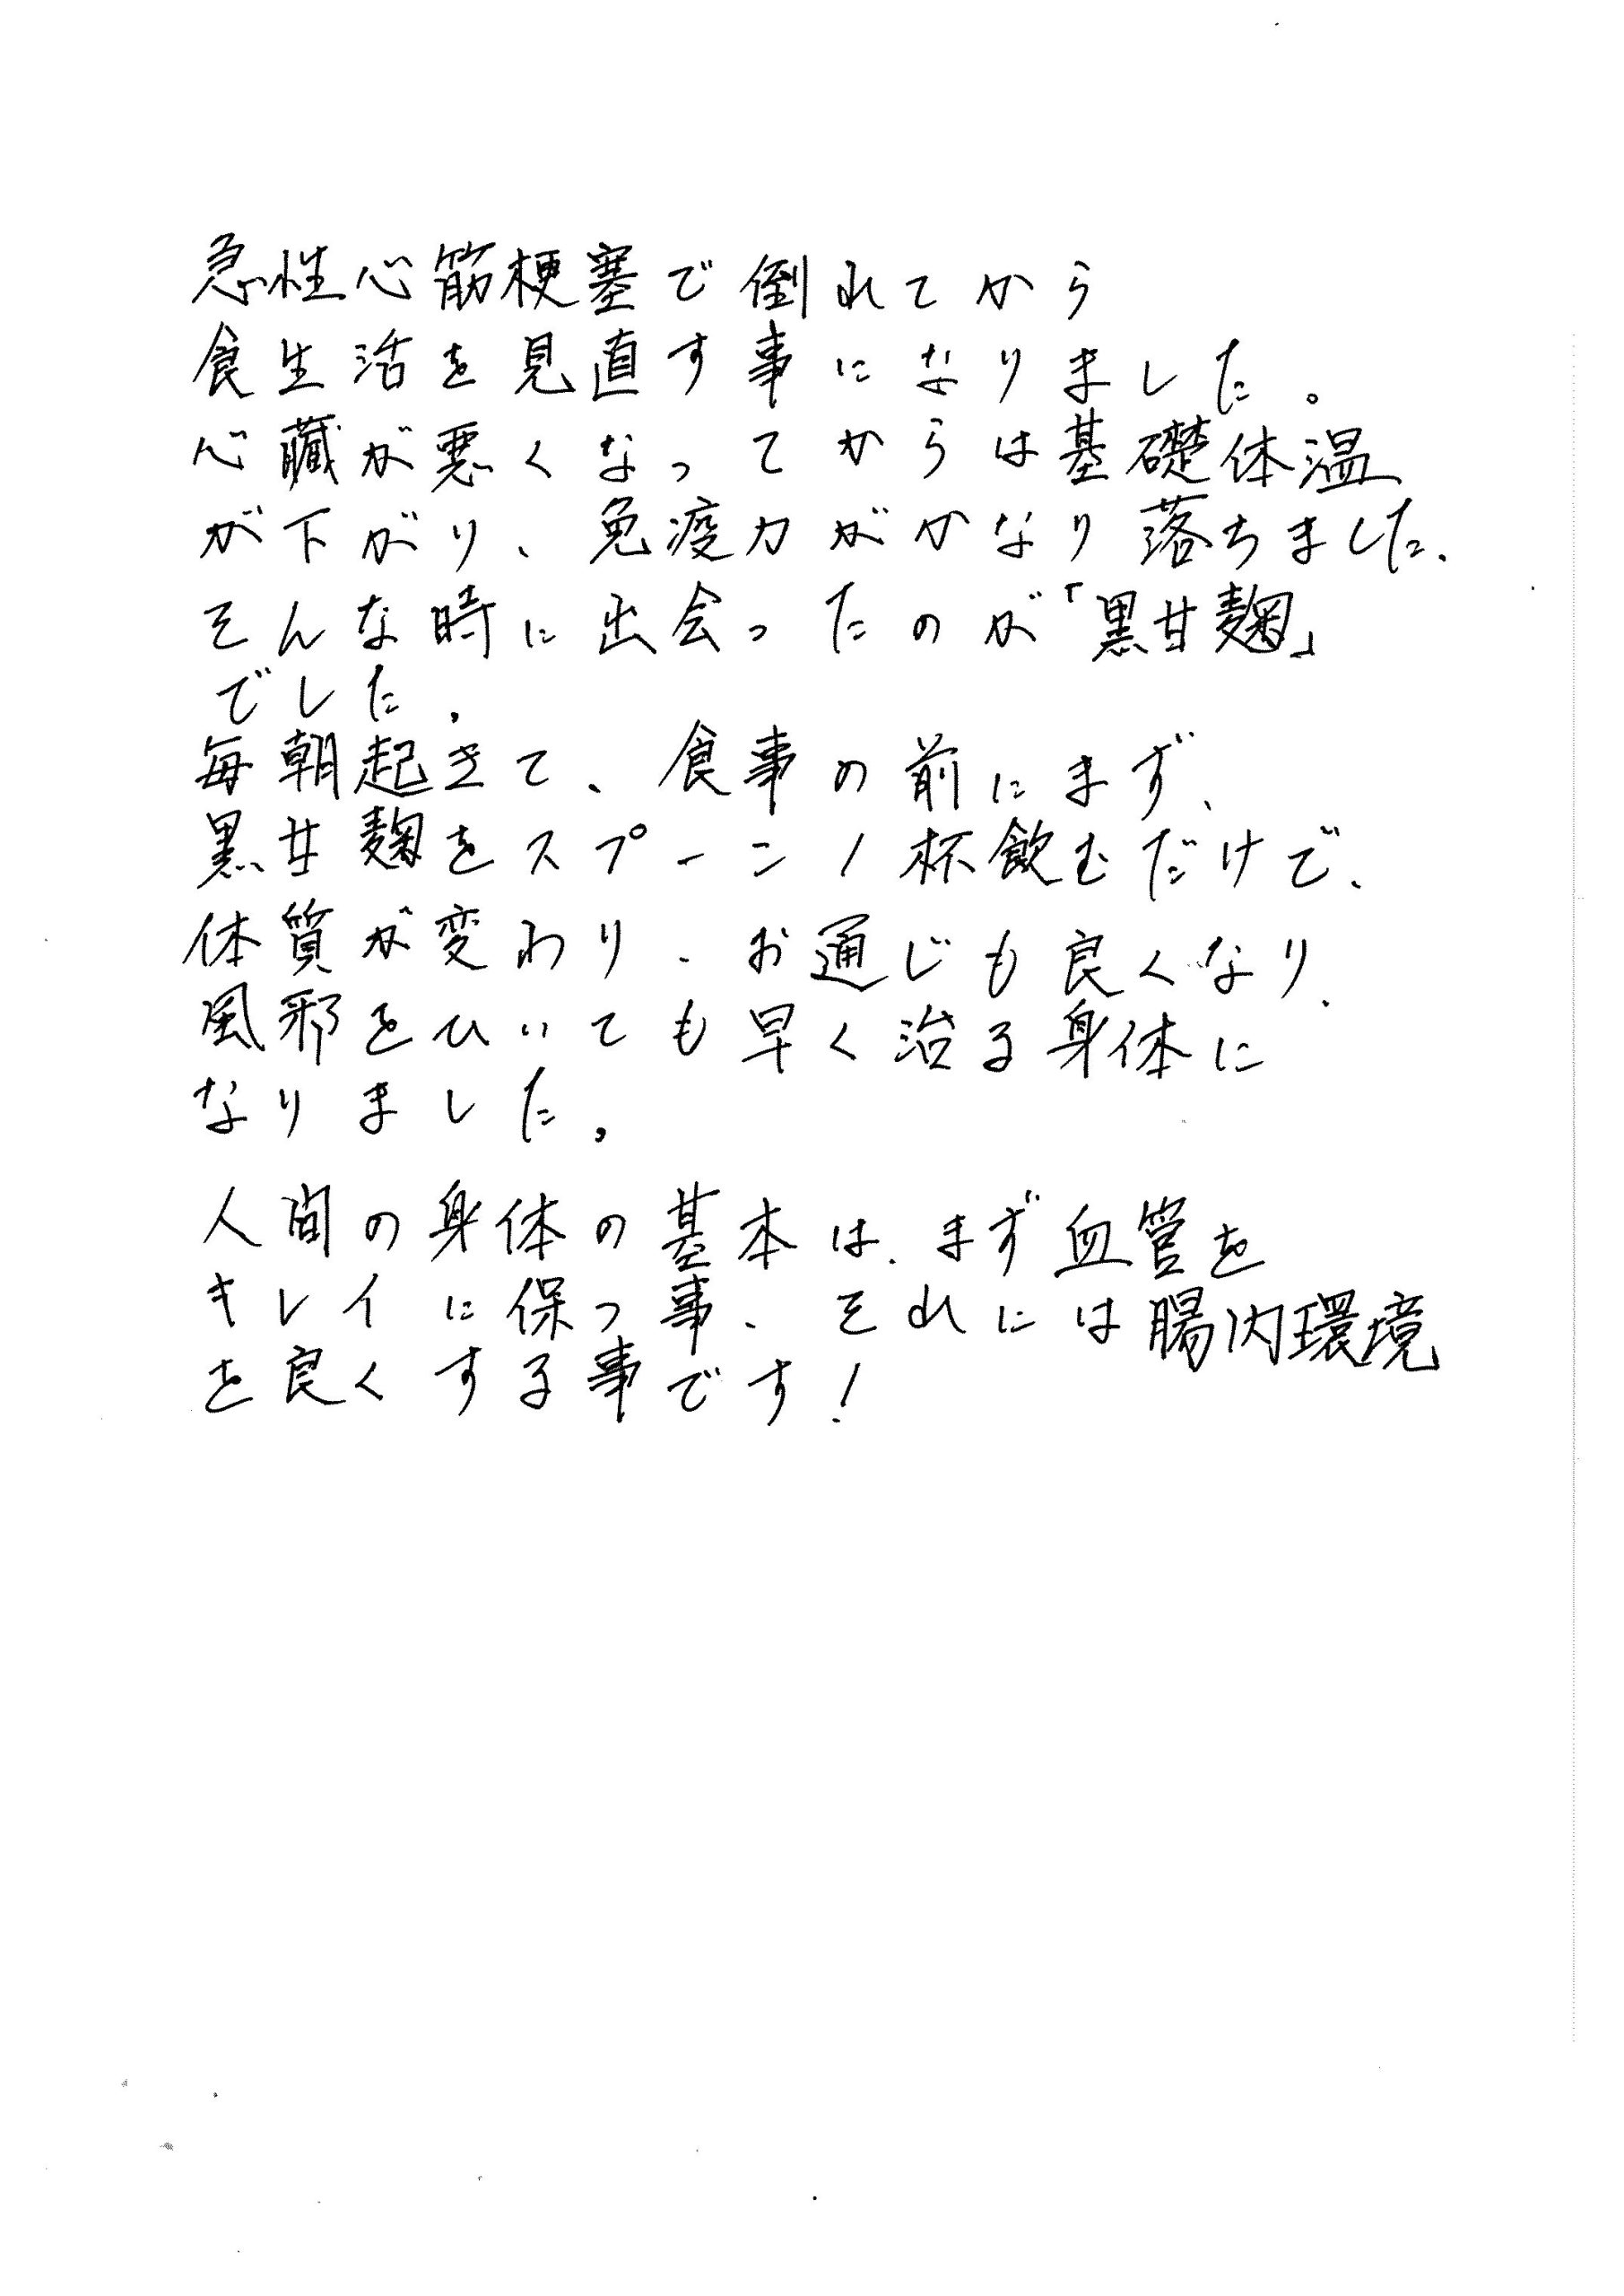 急性心筋梗塞で倒れてから
食生活を見直す事になりました。
心臓が悪くなってからは基礎体温
が下がり、免疫力がかなり落ちました、
そんな時に出会ったのが「黒甘麹」
でした。
毎朝起きて、食事の前にまず、
黒甘麹をスプーン1杯飲むだけで、
体質が変わり、お通じも良くなり、
風邪をひいても早く治る身体に
なりました。
人間の身体の基本は、まず血管を
キレイに保つ事、それには腸内環境
を良くする事です!